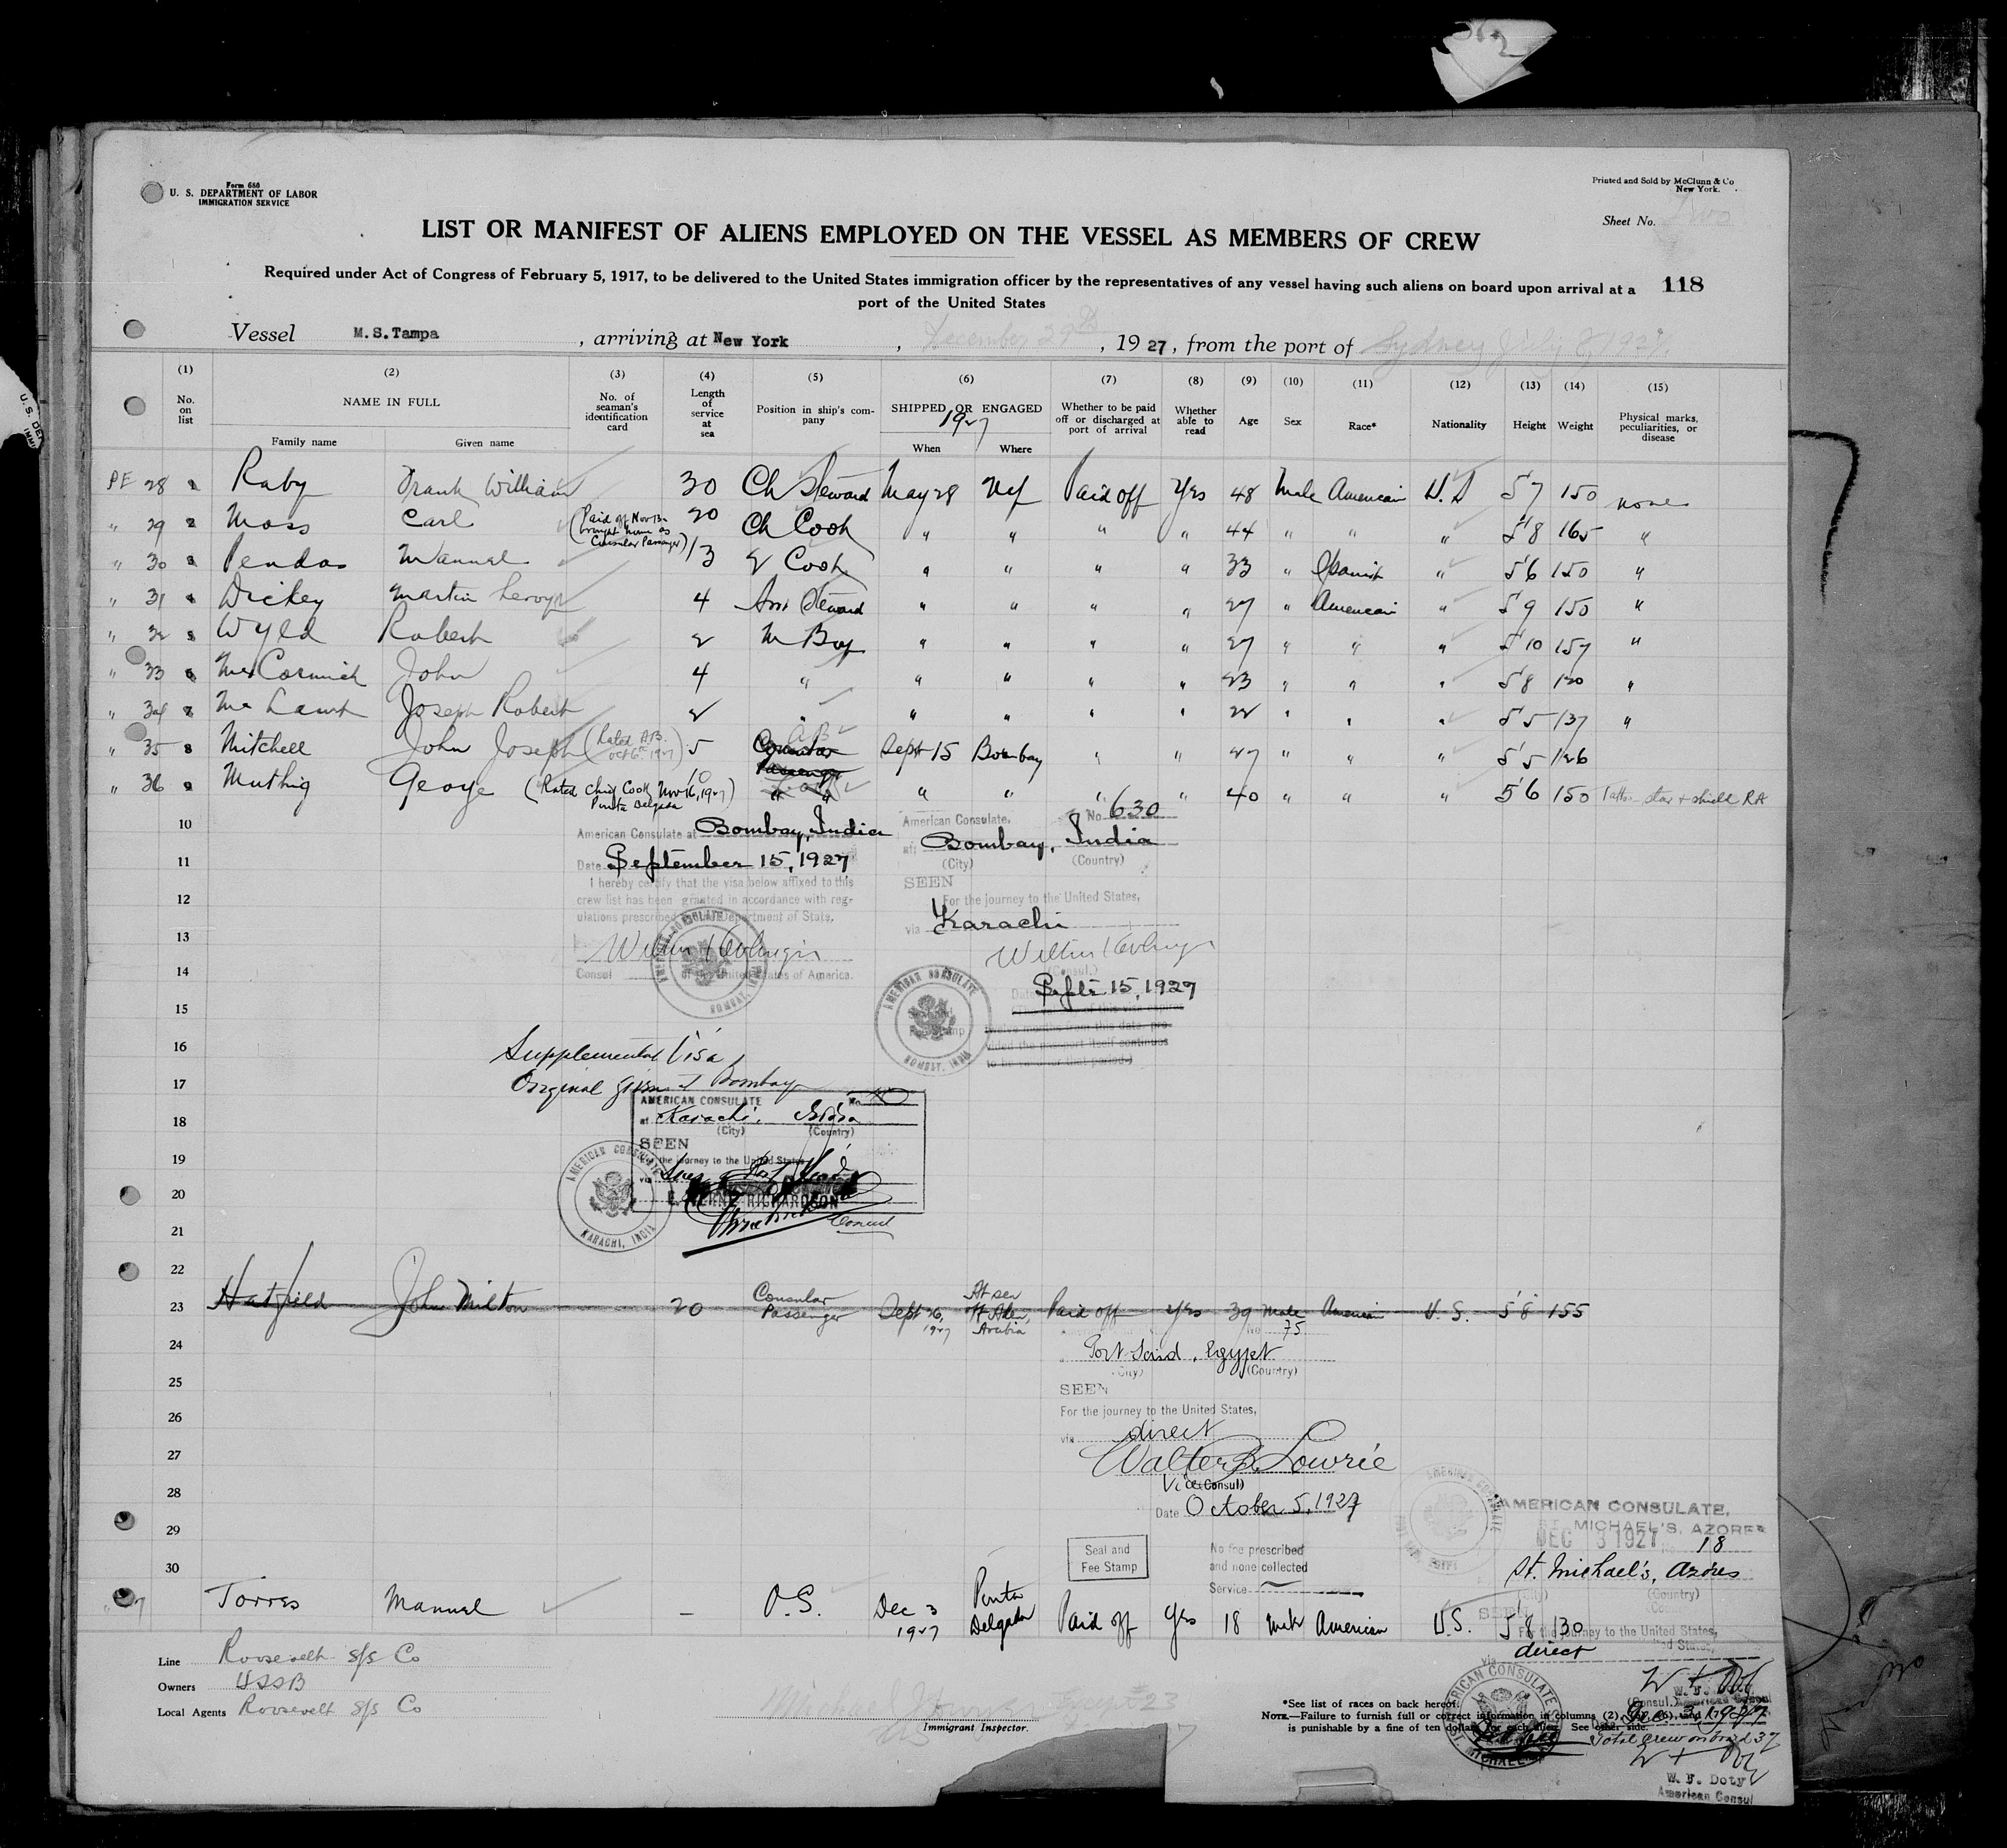 Form 680
U. S. DEPARTMENT OF LABOR
IMMIGRATION SERVICE
Printed and Sold by McClunn & Co
New York.
Sheet No. Two
LIST OR MANIFEST OF ALIENS EMPLOYED ON THE VESSEL AS MEMBERS OF CREW
Required under Act of Congress of February 5, 1917, to be delivered to the United States immigration officer by the representatives of any vessel having such aliens on board upon arrival at a
port of the United States
118
Vessel M.S.Tampa, arriving at New York, December 29th, 1927, from the port of Sydney July 8, 1927.
(1) No. on list
(2) NAME IN FULL
Family name Given name
(3) No. of seaman's identification card
(4) Length of service at sea
(5) Position in ship's company
(6) SHIPPED OR ENGAGED 1927
When Where
(7) Whether to be paid off or discharged at port of arrival
(8) Whether able to read
(9) Age
(10) Sex
(11) Race*
(12) Nationality
(13) Height
(14) Weight
(15) Physical marks, peculiarities, or disease
28 Raby Frank William 30 Ch Steward May 28 Paid off Yes 48 Male American U.S 5'7 150 none
" 29 Moss Carl (Paid off Nov 13- brought home as Consular Passenger) 20 Ch Cook " " " " 44 " " " 5'8 165 "
" 30 Pendas Manuel 13 2 Cook " " " " 33 " Spanish " 5'6 150 "
" 31 Dickey Martin Leroy 4 Ass Steward " " " " 27 " American " 5'9 150 "
" 32 Wyld Robert 2 M Boy " " " " 27 " " " 5'10 157 "
" 33 McCormick John 4 " " " " " 23 " " " 5'8 "
" 34 Joseph Robert 2 " " " " " 22 " " " 5'5 137 "
" 35 Mitchell John Joseph (Rated A.B. Oct 6th 1927) 5 A.B. Consular Passenger Sept 15 Bombay " " 27 " " " 5'5 126
" 36 Muthig George (Rated Chief Cook, Nov 16, 1927) Ponta Delgada 10 " " " " " " 40 " " " 5'6 150 star + shield RA
10
American Consulate at Bombay, India
American Consulate, No 630
at: Bombay, India
(City) (Country)
11
Date September 15, 1927
I hereby certify that the visa below affixed to this
crew list has been granted in accordance with reg-
ulations prescribed Department of State.
SEEN
12
For the journey to the United States,
via Karachi
13
Consul of the United States of America.
AMERICAN CONSULATE BOMBAY, INDIA
14
(Consul.)
Date Sept. 15, 1927
AMERICAN CONSULATE BOMBAY, INDIA
15
twelve months from this date, pro-
vided the passport itself continues
to be for that period.)
16
Supplemental Visa,
17
Original given at Bombay
AMERICAN CONSULATE No
at Karachi, India
18
(City) (Country)
SEEN
19
For the journey to the United States
via
20
RICHARDSON
21
Consul
AMERICAN CONSULATE KARACHI, INDIA
22
23 Hatfield John Milton 20 Consular Passenger Sept 26, 1927 At sea off Aden, Arabia Paid off Yes 39 Male American U.S. 5'8 155
No 75
24
Port Said, Egypt
(City) (Country)
25
SEEN
26
For the journey to the United States,
via direct
27
Walter B. Lowrie
28
Vice (Consul)
Date October 5, 1927
29
AMERICAN CONSULATE,
ST. MICHAEL'S, AZORES
DEC 3 1927 No 18
30
Seal and
Fee Stamp
No fee prescribed
and none collected
Service
St. Michael's, Azores
(City) (Country)
SEEN
Torres Manuel - O.S. Dec 3 1927 Ponta Delgada Paid off Yes 18 Male American U.S. 5'8 130
For the journey to the United States,
via direct
Line Roosevelt S/S Co
Owners USSB
Local Agents Roosevelt S/S Co
Immigrant Inspector.
*See list of races on back hereof.
NOTE.—Failure to furnish full or correct information in columns (2),
is punishable by a fine of ten dollars for each alien. See other side.
W. F. Doty
(Consul.) American Consul
Dec. 3, 1927
Total crew on board 37
W. F. Doty
American Consul
AMERICAN CONSULATE ST. MICHAEL'S